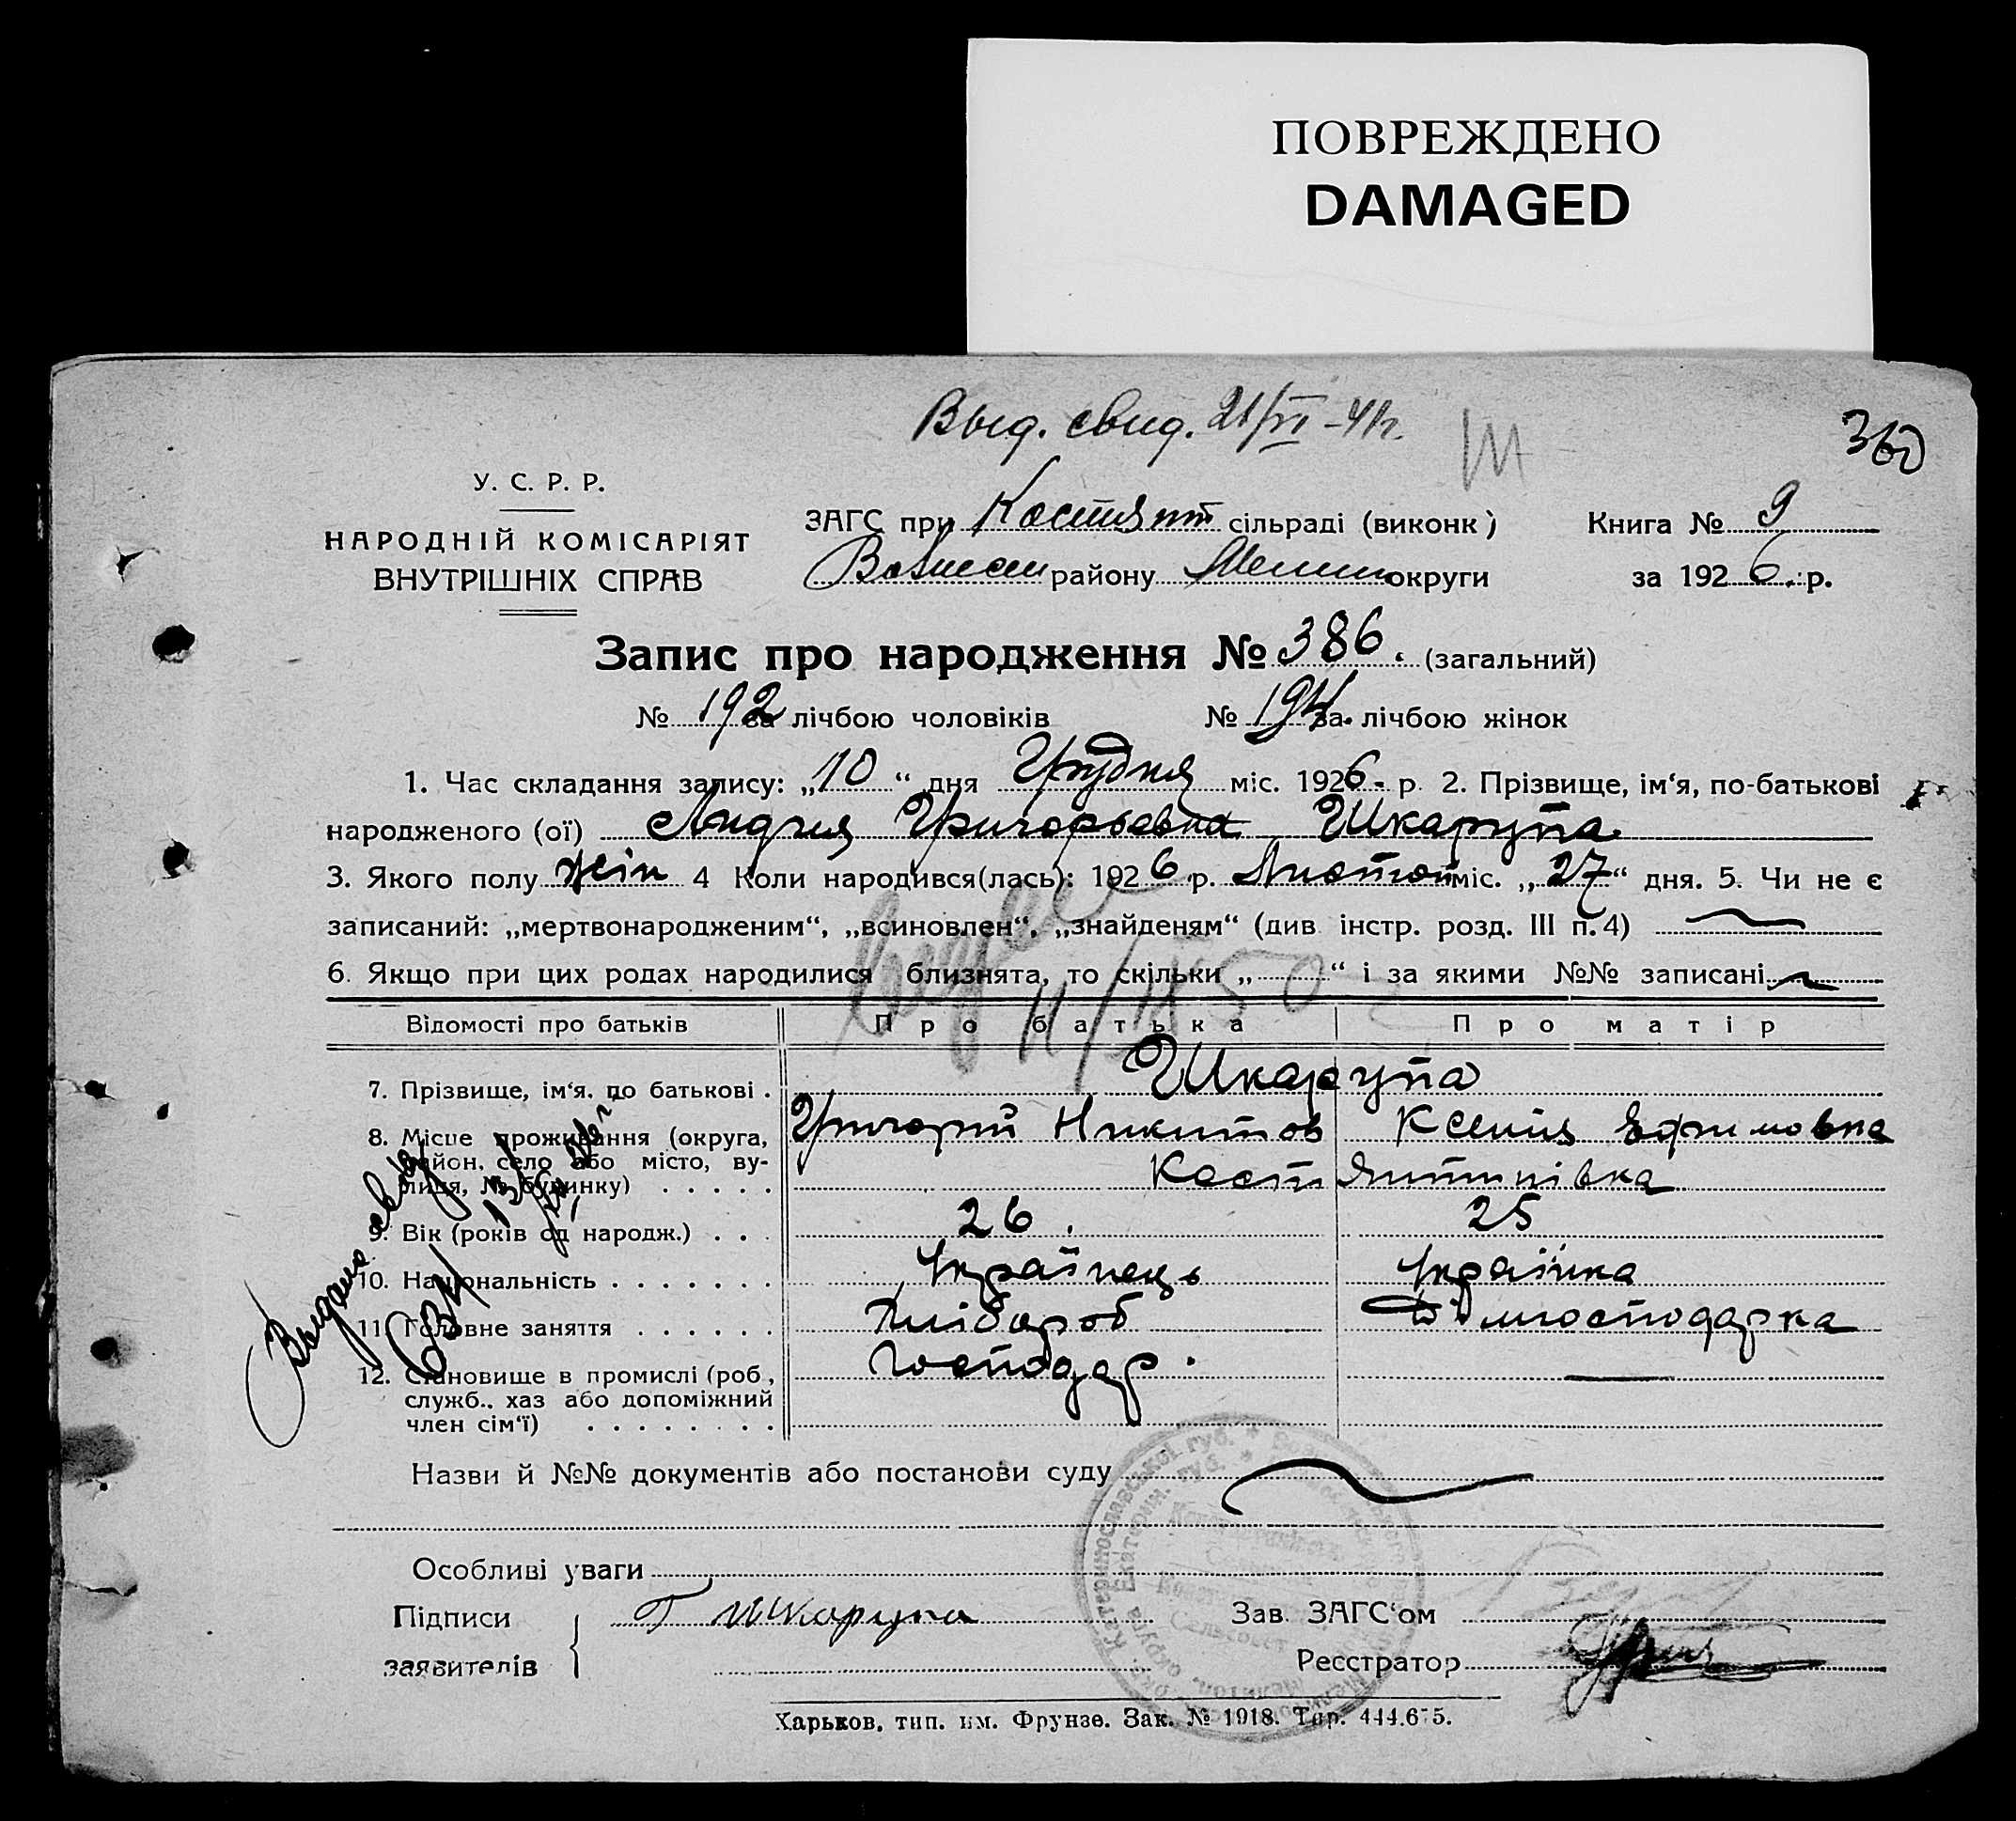 ПОВРЕЖДЕНО
DAMAGED
Выд. свид. 21/VI-41г.
360
У. С. Р. Р.
НАРОДНІЙ КОМІСАРІЯТ
ВНУТРІШНІХ СПРАВ
ЗАГС при Костянт сільраді (виконк)
Книга № 9
району Мелит округи
за 1926 р.
Запис про народження № 386. (загальний)
№ 192 за лічбою чоловіків № 194 за лічбою жінок
1. Час складання запису: „10“ дня Грудня міс. 1926 р. 2. Прізвище, ім‘я, по-батькові
народженого (ої) Лидия Григорьевна Шкарупа
3. Якого полу жін 4 Коли народився(лась): 1926 р. Листоп міс. „27“ дня. 5. Чи не є
записаний: „мертвонародженим“, „всиновлен“, „знайденям“ (див інстр. розд. III п. 4)
6. Якщо при цих родах народилися близнята, то скільки „ “ і за якими №№ записані
Відомості про батьків Про батька Про матір
7. Прізвище, ім‘я, по батькові . Шкарупа
Григорий Никитов Ксения Ефимовна
8. Місце проживання (округа, район, село або місто, вулиця, № будинку) . . . . . Костянтинівка
9. Вік (років од народж.) . . . 26. 25
10. Національність . . . . . . . Українець Українка
11. Головне заняття . . . . . . Хлібороб Домгосподарка
12. Становище в промислі (роб, Господар. —
служб.. хаз або допоміжний
член сім‘ї) . . . . . . . .
Видано свид
Назви й №№ документів або постанови суду
Особливі уваги
Підписи
заявителів
Г Шкарупа
Зав. ЗАГС‘ом
Реєстратор
Харьков, тип. им. Фрунзе. Зак. № 1918. Тир. 444.675.